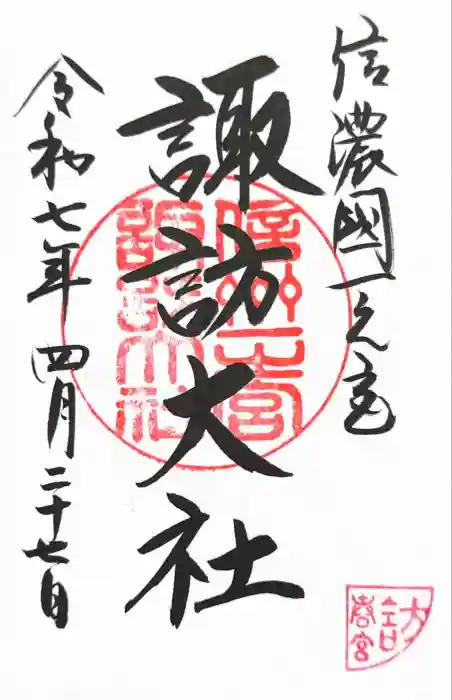 信濃國一之宮
諏訪大社
令和七年四月二十七日
信州一之宮
諏訪大社
春宮